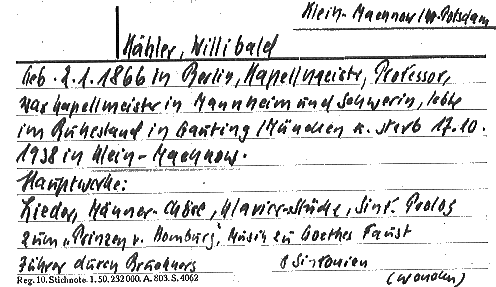 Klein-Machnow/b. Potsdam
Kähler, Willibald
Geb. 2.1.1866 in Berlin, Kapellmeister, Professor,
war Kapellmeister in Mannheim und Schwerin, lebte
im Ruhestand in Gauting/München u. starb 17.10.
1938 in Klein-Machnow.
Hauptwerke:
Lieder, Männer-Chöre, Klavier-Stücke, Sinf. Prolog
zum „Prinzen v. Homburg", Musik zu Goethes Faust
Führer durch Bruckners 8 Sinfonien
Reg. 10. Stichnote. 1. 50. 232000. A. 803. S. 4062